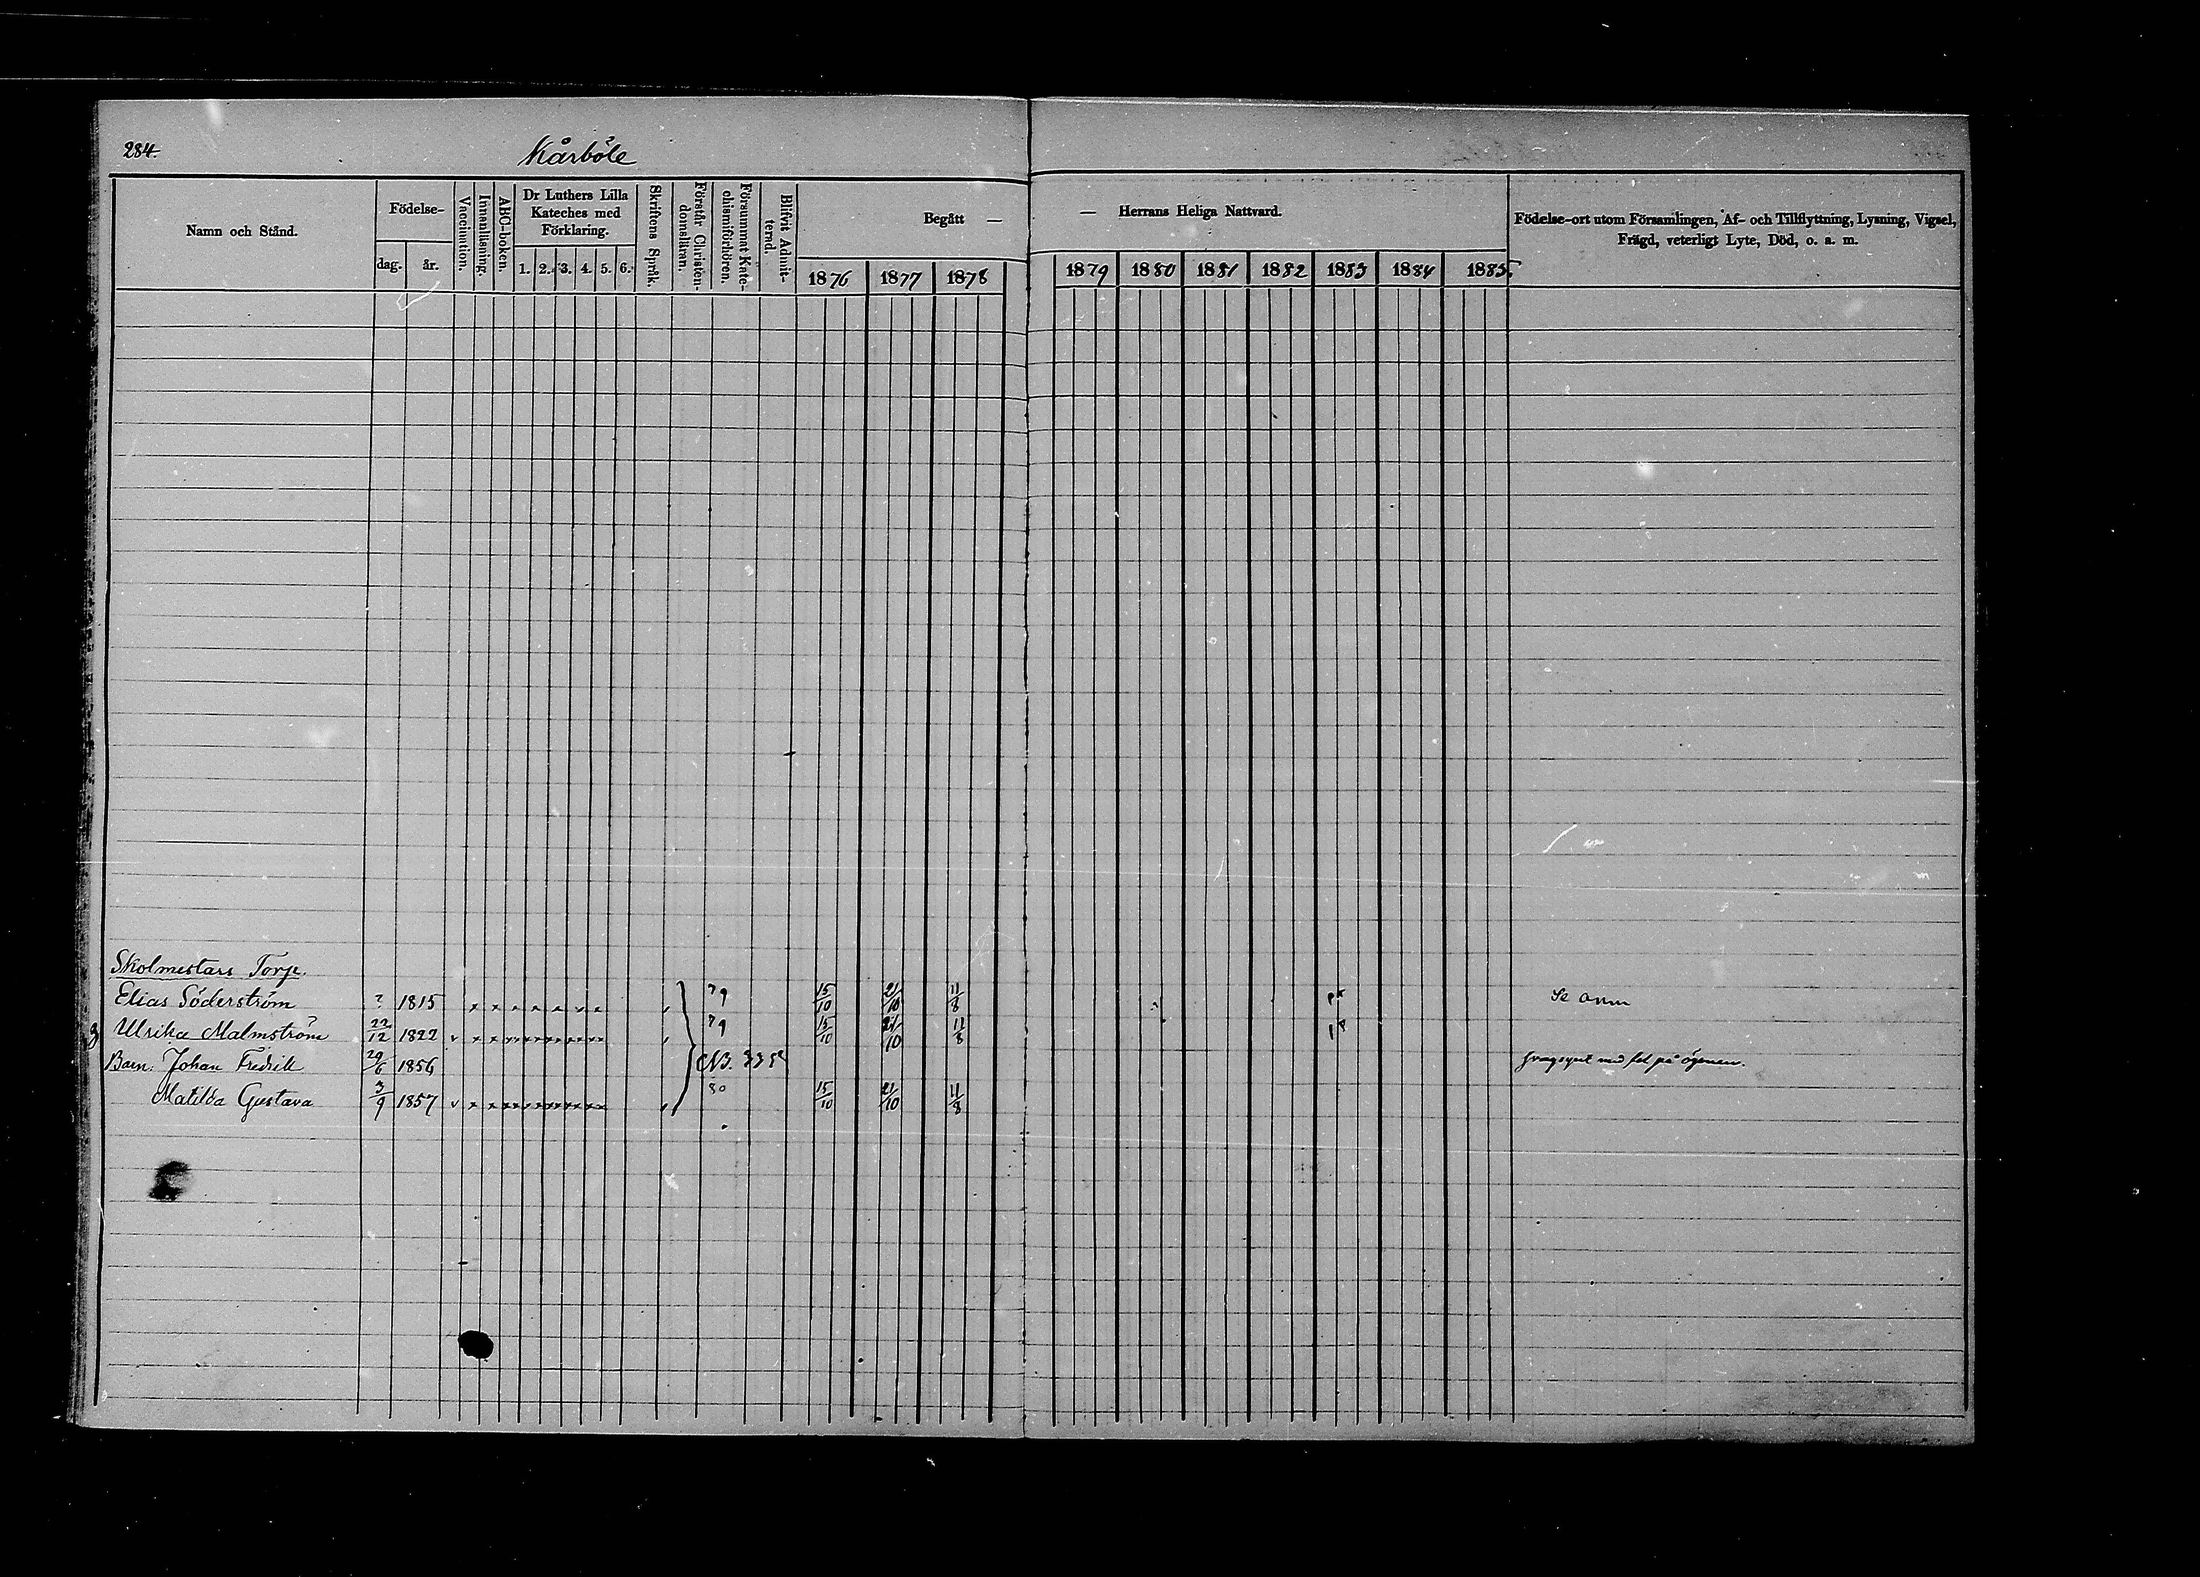 284.
Kårböle
Namn och Stånd.
Födelse-
dag. år.
Vaccination.
Innanläsning.
ABC-boken.
Dr Luthers Lilla
Kateches med
Förklaring.
1. 2. 3. 4. 5. 6.
Skriftens Språk.
Förstår Christen-
domsläran.
Försummat Kate-
chismiförhören.
Blifvit Admit-
terad.
Begått —
1876 1877 1878
— Herrans Heliga Nattvard.
1879 1880 1881 1882 1883 1884 1885.
Födelse-ort utom Församlingen, Af- och Tillflyttning, Lysning, Vigsel,
Frägd, veterligt Lyte, Död, o. a. m.
Skolmestars Torp.
Elias Söderström ? 1815 79 15/10 21/10 11/8 Se anm
Ulrika Malmström 22/12 1822 79 15/10 21/10 11/8
Barn: Johan Fredrik 29/6 1856 NB. på ögonen.
Matilda Gustava 3/9 1857 80 15/10 21/10 11/8